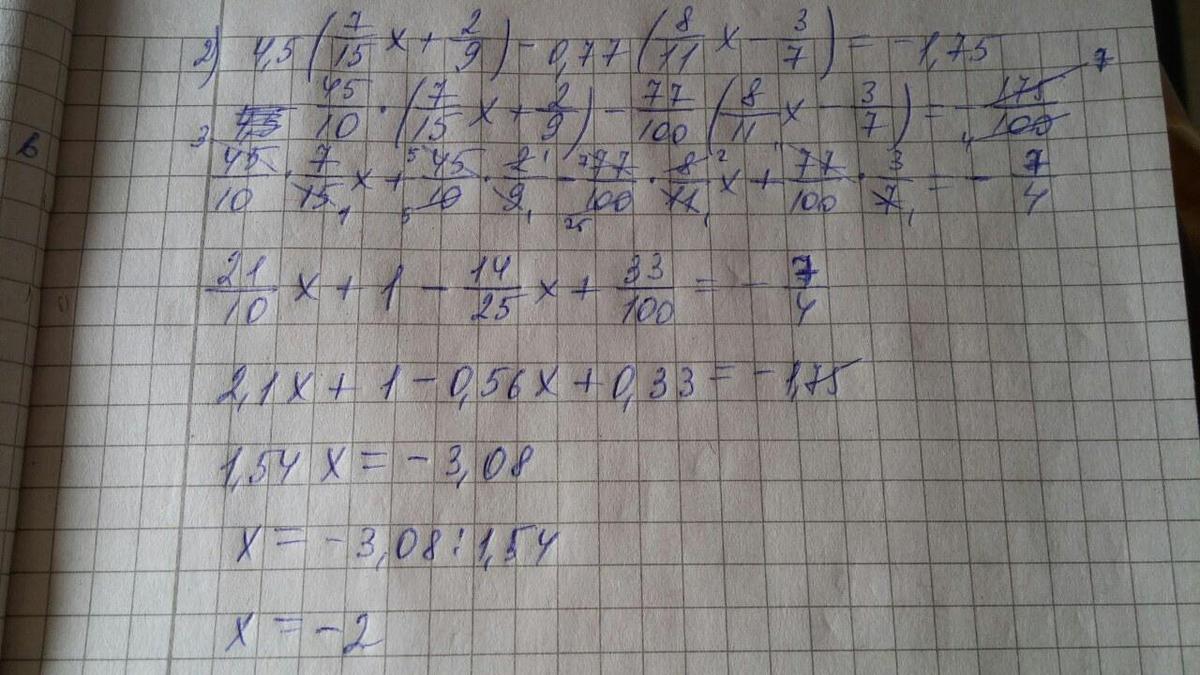 2) 4,5 (7/15 x + 2/9) - 0,77 (8/11 x - 3/7) = -1,75
45/10 · (7/15 x + 2/9) - 77/100 (8/11 x - 3/7) = - 175/100 7 4
3 45/10 · 7/15 x + 45/10 · 2/9 - 77/100 · 8/11 x + 77/100 · 3/7 = - 7/4
21/10 x + 1 - 14/25 x + 33/100 = - 7/4
2,1x + 1 - 0,56x + 0,33 = -1,75
1,54x = -3,08
x = -3,08 : 1,54
x = -2